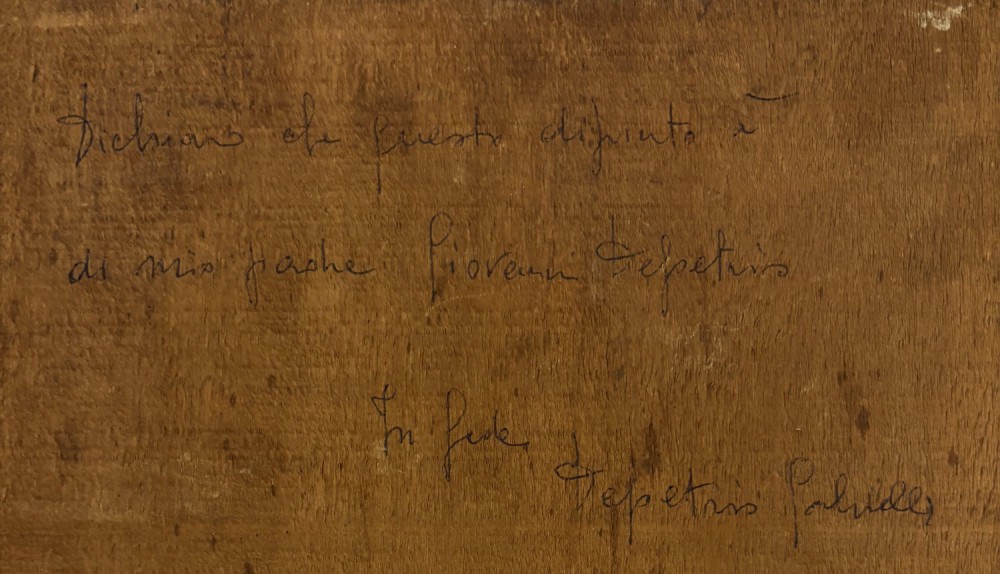 Dichiaro che questo dipinto è
di mio padre Giovanni Depetris
In fede
Depetris Gabriella